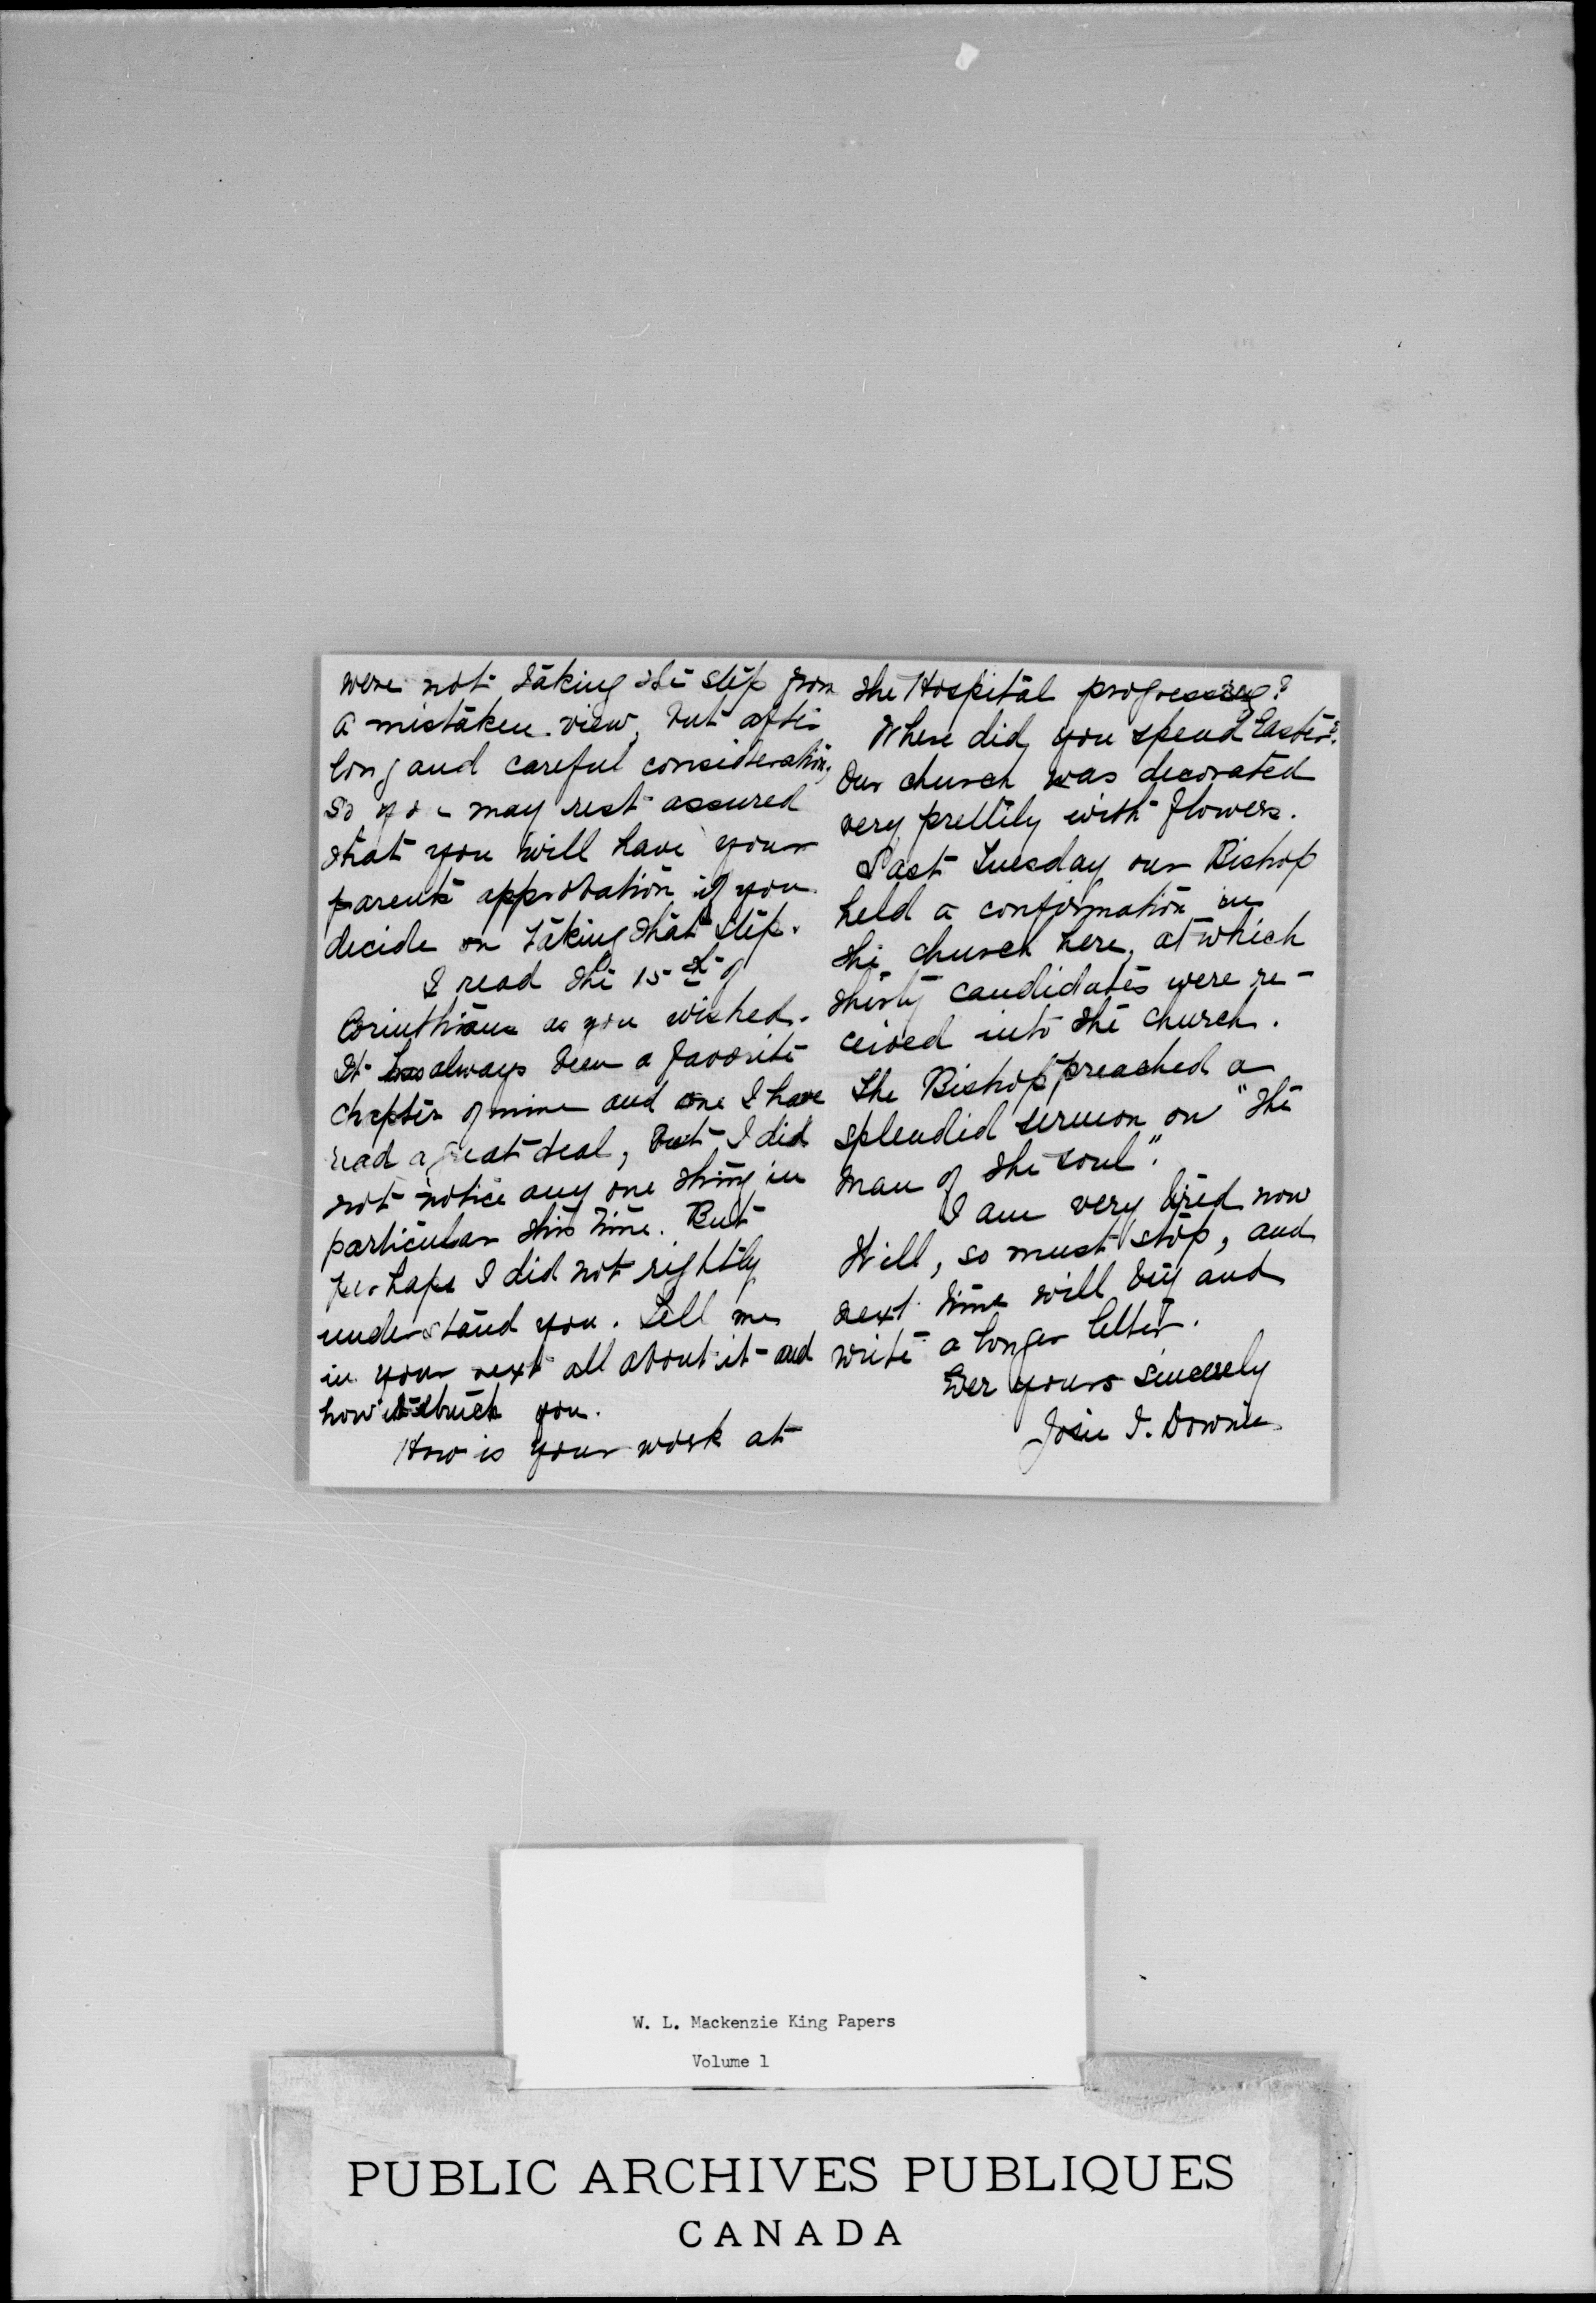 were not taking the step from
a mistaken view, but after
long and careful consideration,
so you may rest assured
that you will have your
parents approbation if you
decide on taking that step.
I read the 15th of
Corinthians as you wished.
It has always been a favorite
chapter of mine and one I have
read a great deal, but I did
not notice any one thing in
particular this time. But
perhaps I did not rightly
understand you. Tell me
in your next all about it and
how it struck you.
How is your work at
the Hospital progressing?
Where did you spend Easter?
Our church was decorated
very prettily with flowers.
Last Tuesday our Bishop
held a confirmation in
the church here, at which
thirty candidates were re-
ceived into the church.
The Bishop preached a
splendid sermon on "The
man of the soul".
I am very tired now
Will, so must stop, and
next time will try and
write a longer letter.
Ever yours sincerely
Josie I. Downie
W. L. Mackenzie King Papers
Volume 1
PUBLIC ARCHIVES PUBLIQUES
CANADA